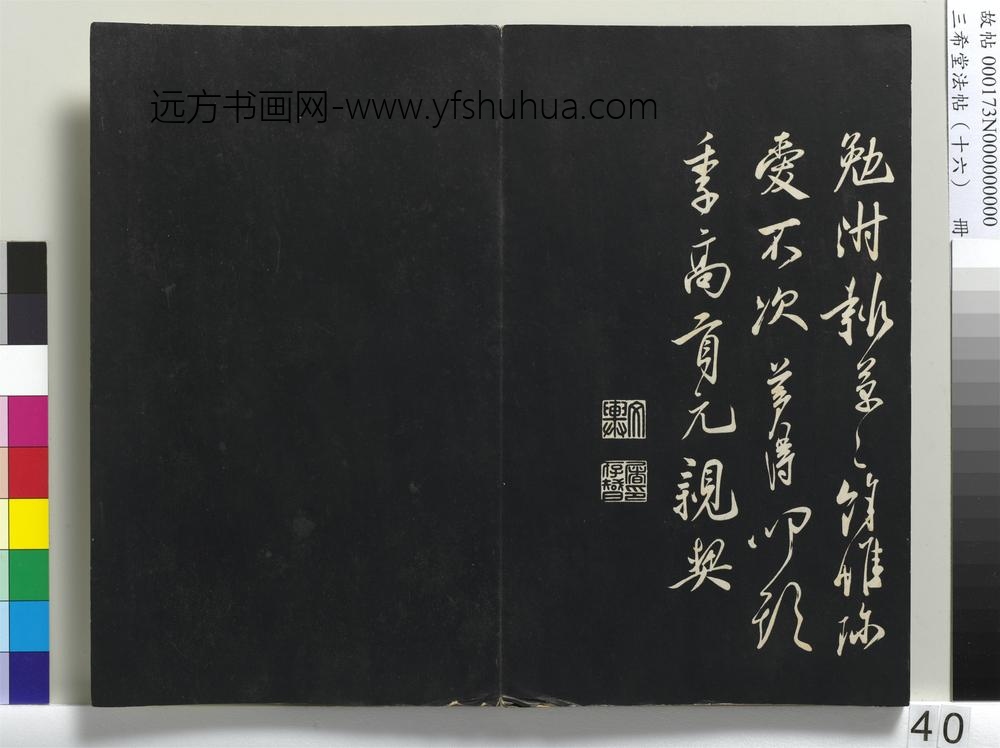 故帖 000173N000000000
三希堂法帖（十六） 冊
远方书画网-www.yfshuhua.com
勉附報草〻餘惟珍
愛不次 叩頭
季高貢元親契
40